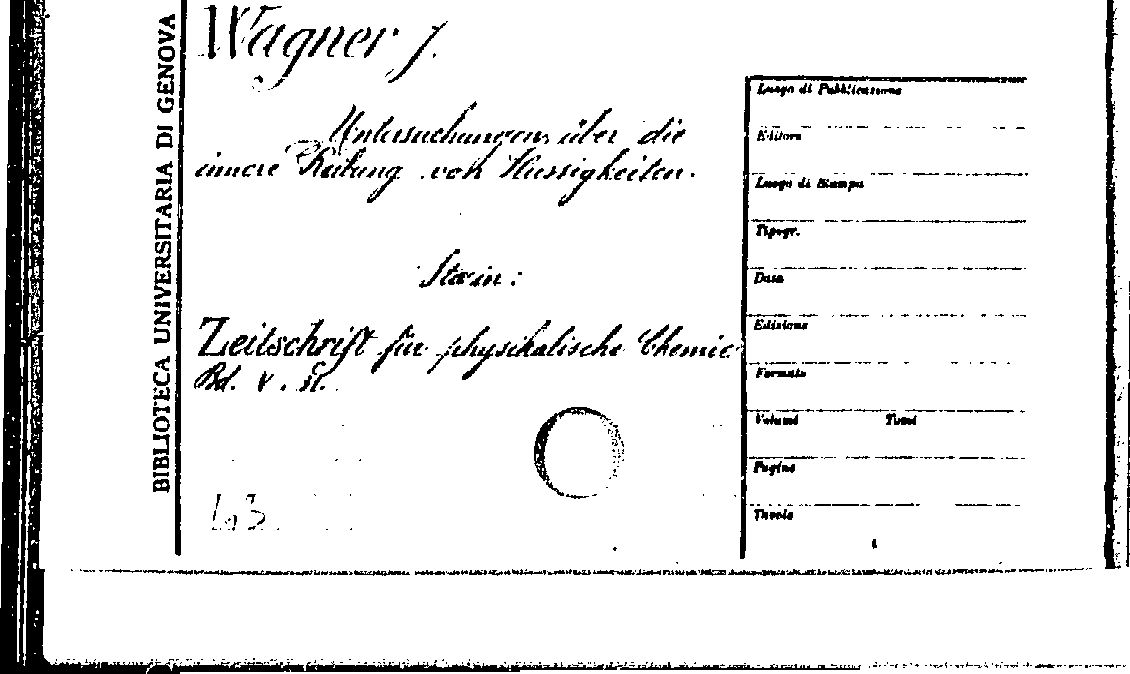 BIBLIOTECA UNIVERSITARIA DI GENOVA
Wagner J.
Untersuchungen über die
innere Reibung von Flüssigkeiten.
Sta in:
Zeitschrift für physikalische Chemie
Bd. V.
Luogo di Pubblicazione
Editore
Luogo di Stampa
Tipogr.
Data
Edizione
Formato
Volumi Tomi
Pagine
Tavole